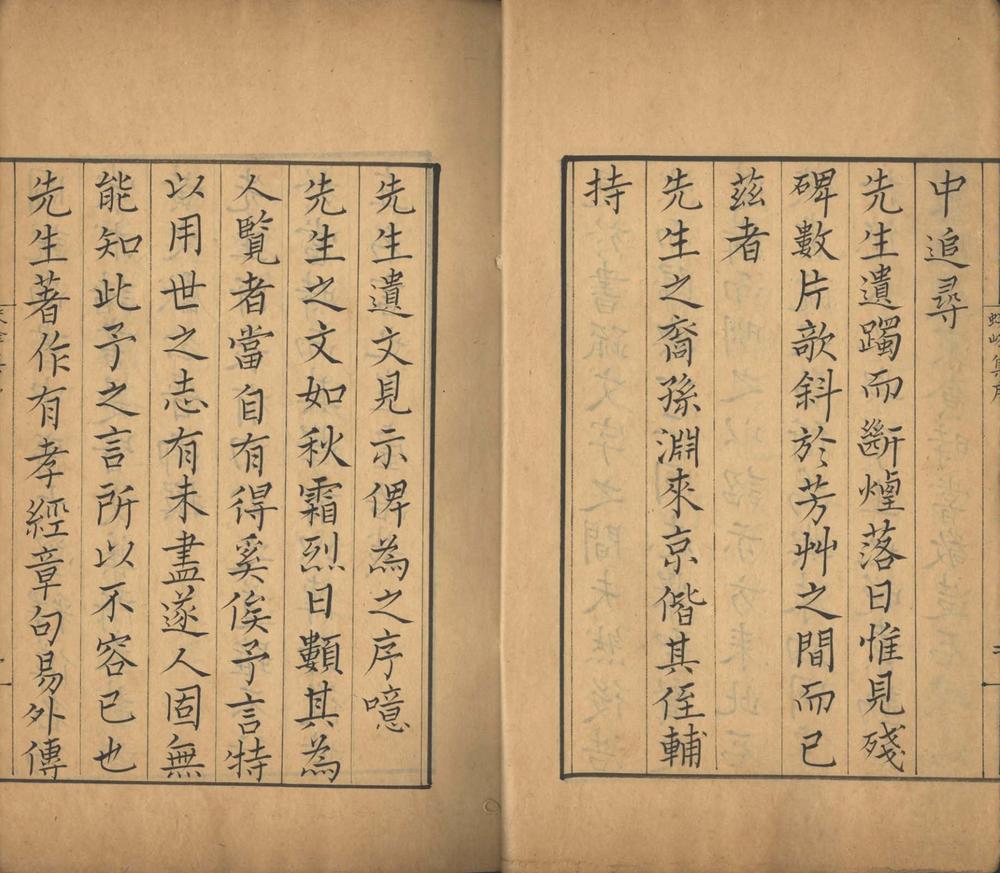 中追尋
先生遺躅而斷煙落日惟見殘
碑數片欹斜於芳艸之間而已
茲者
先生之裔孫淵來京偕其侄輔
持
先生遺文見示俾為之序噫
先生之文如秋霜烈日顯其為
人覽者當自有得奚俟予言特
以用世之志有未盡遂人固無
能知此予之言所以不容已也
先生著作有孝經章句易外傳